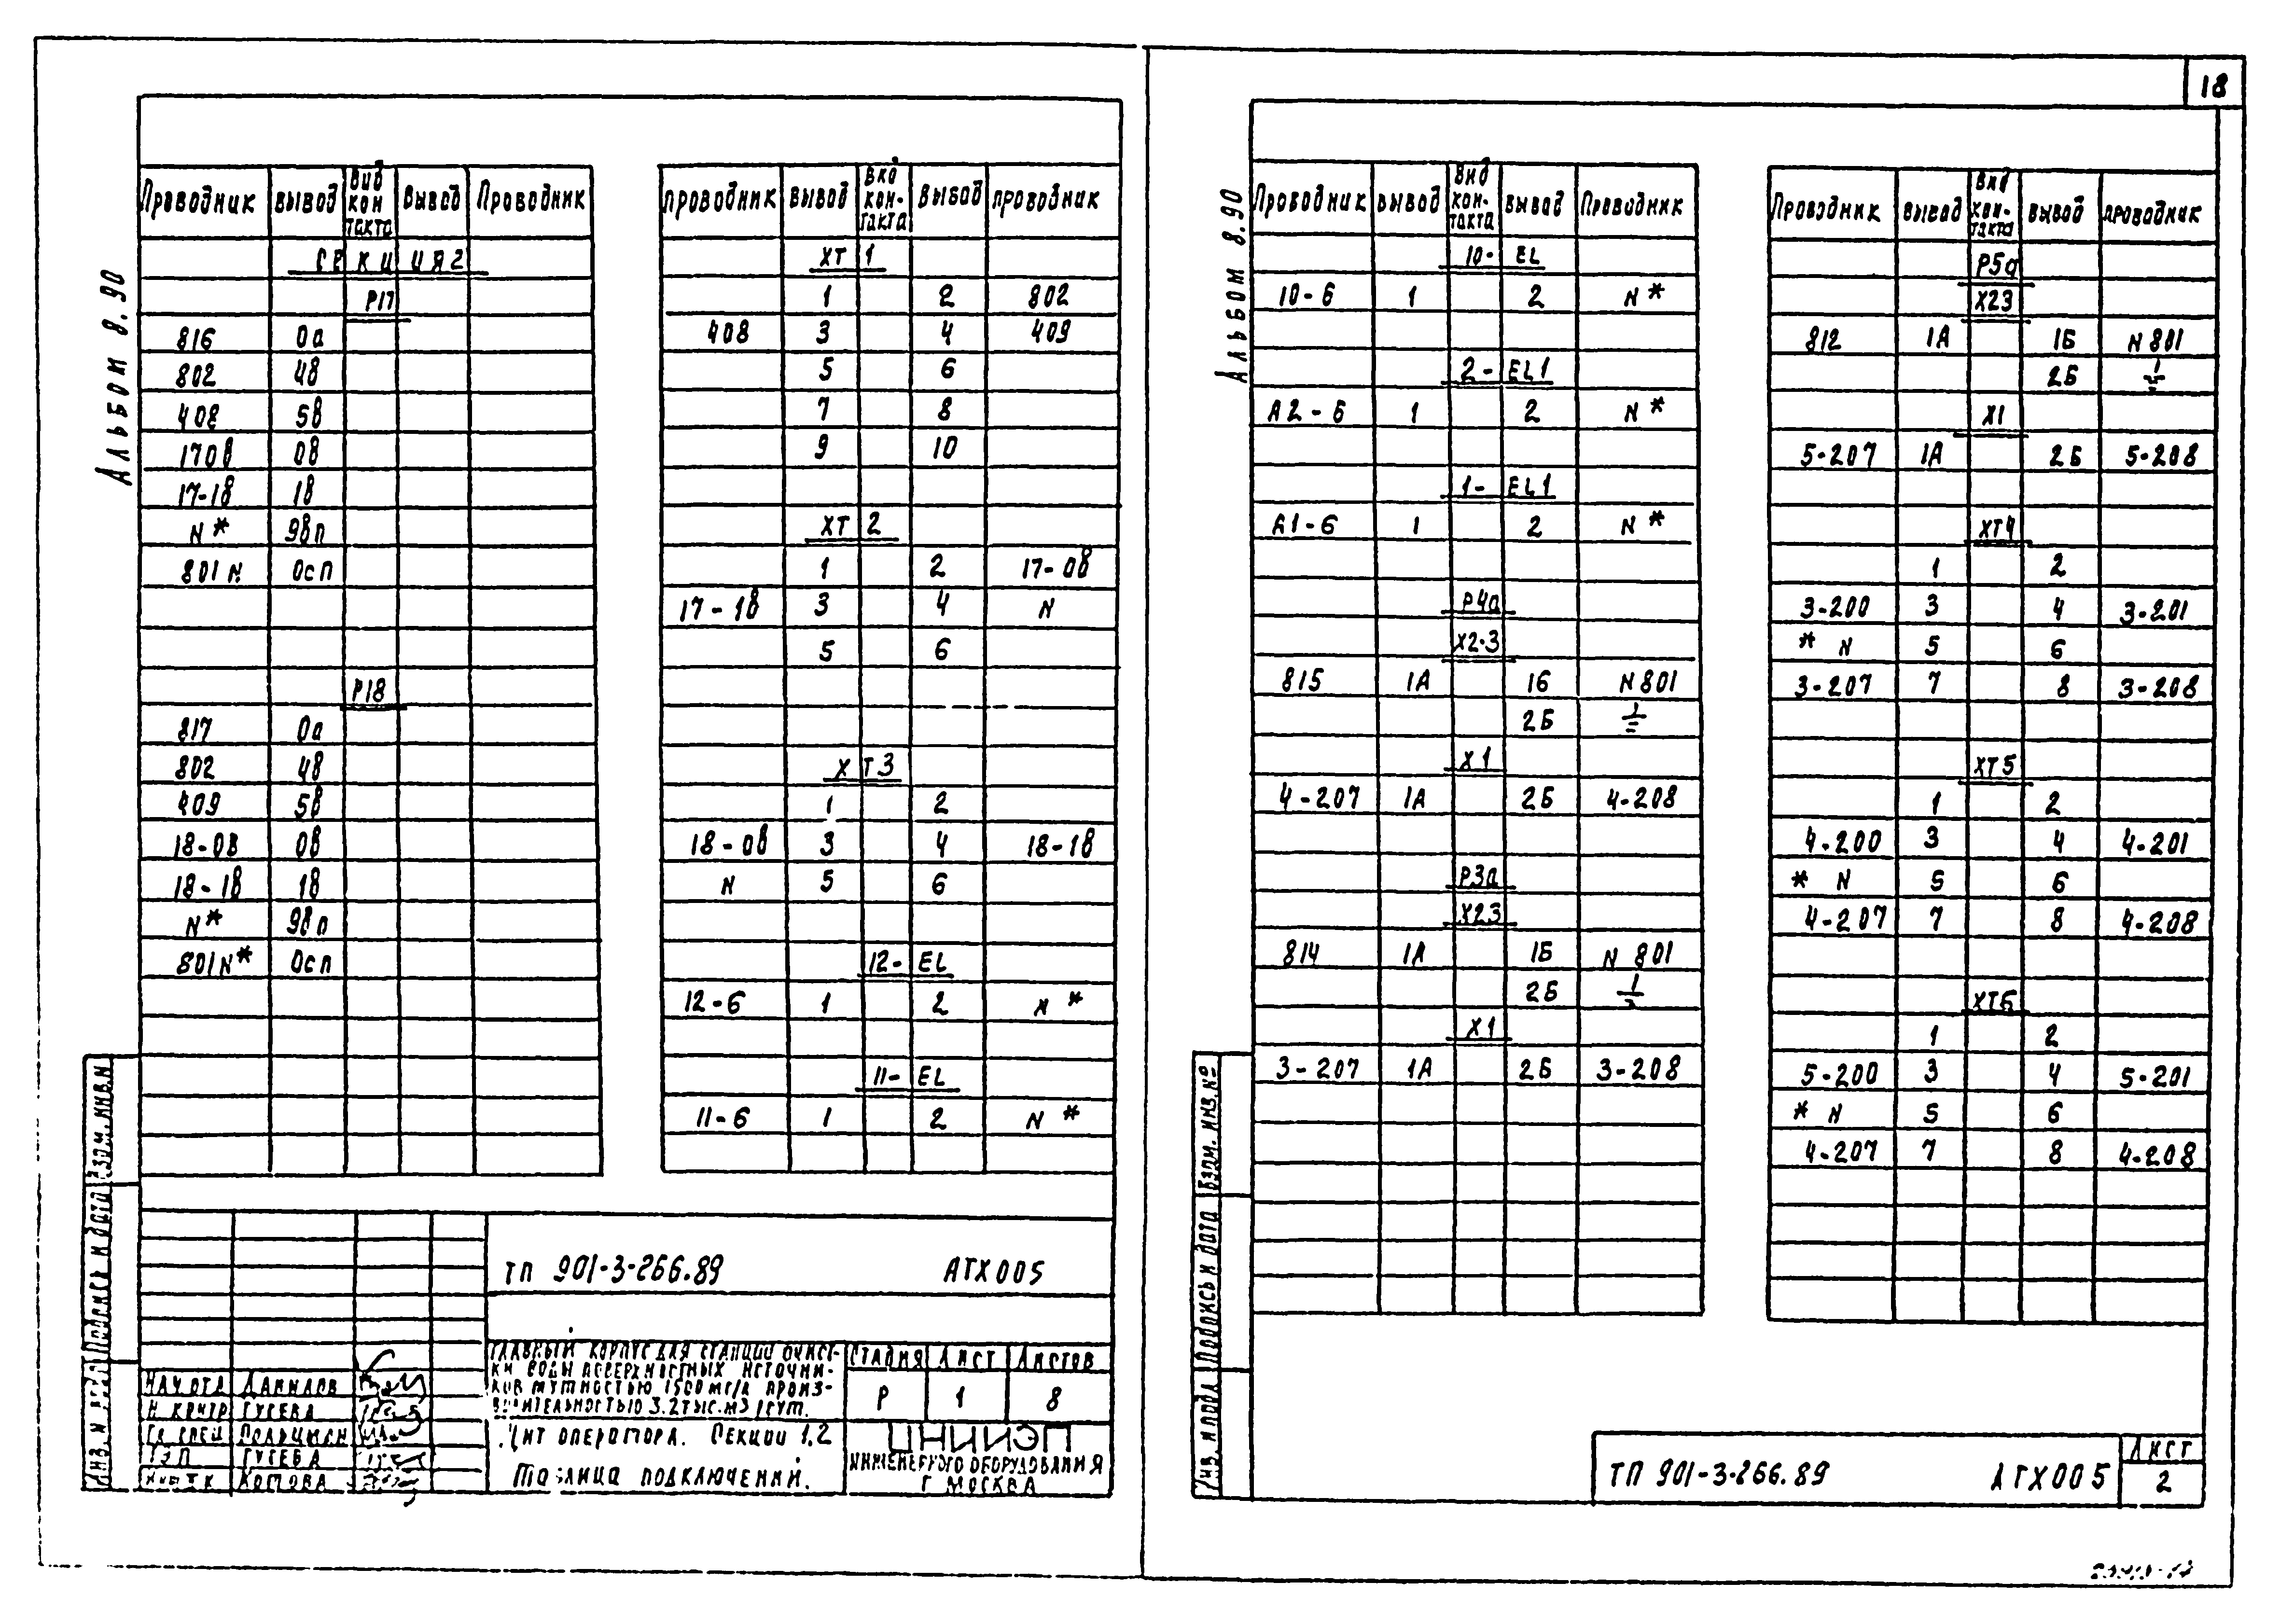 18
Альбом 8.90
Проводник вывод вид кон такта вывод Проводник
СЕКЦИЯ2
Р17
816 0а
802 4в
408 5в
170в 0в
17-1в 1в
N* 9вп
801 N 0сп
Р18
817 0а
802 4в
409 5в
18-0в 0в
18-1в 1в
N* 9вп
801N* 0сп
проводник вывод вид кон-такта вывод проводник
ХТ 1
1 2 802
408 3 4 409
5 6
7 8
9 10
ХТ 2
1 2 17-0в
17-1в 3 4 N
5 6
ХТ3
1 2
18-0в 3 4 18-1в
N 5 6
12- EL
12-6 1 2 N*
11- EL
11-6 1 2 N*
ТП 901-3-266.89 АТХ005
ГЛАВНЫЙ КОРПУС ДЛЯ СТАНЦИИ ОЧИСТ-
КИ ВОДЫ ПОВЕРХНОСТНЫХ ИСТОЧНИ-
КОВ МУТНОСТЬЮ 1500 мг/л ПРОИЗ-
ВОДИТЕЛЬНОСТЬЮ 3.2 тыс.м3/сут.
Стадия Лист Листов
Р 1 8
Нач отд Данилов
Н контр Гусева
Гл спец
ГЭП Гусева
Котова
Щит оператора. Секции 1,2
Таблица подключений.
ЦНИИЭП
ИНЖЕНЕРНОГО ОБОРУДОВАНИЯ
Г МОСКВА
Взам. инв.N
Подпись и дата
Инв. N подл
Альбом 8.90
Проводник вывод вид кон-такта вывод Проводник
10- EL
10-6 1 2 N*
2- EL1
А2-6 1 2 N*
1- EL1
А1-6 1 2 N*
Р4а
Х2·3
815 1А 1б N801
2Б ⏚
Х1
4-207 1А 2Б 4-208
Р3а
Х23
814 1А 1Б N 801
2Б ⏚
Х1
3-207 1А 2Б 3-208
Проводник вывод вид кон-такта вывод проводник
Р5а
Х23
812 1А 1Б N801
2Б ⏚
Х1
5-207 1А 2Б 5-208
ХТ4
1 2
3-200 3 4 3-201
* N 5 6
3-207 7 8 3-208
ХТ5
1 2
4-200 3 4 4-201
* N 5 6
4-207 7 8 4-208
ХТ6
1 2
5-200 3 4 5-201
* N 5 6
4-207 7 8 4-208
Взам. инв.№
Подпись и дата
Инв. N подл
ТП 901-3-266.89 АТХ005
Лист
2